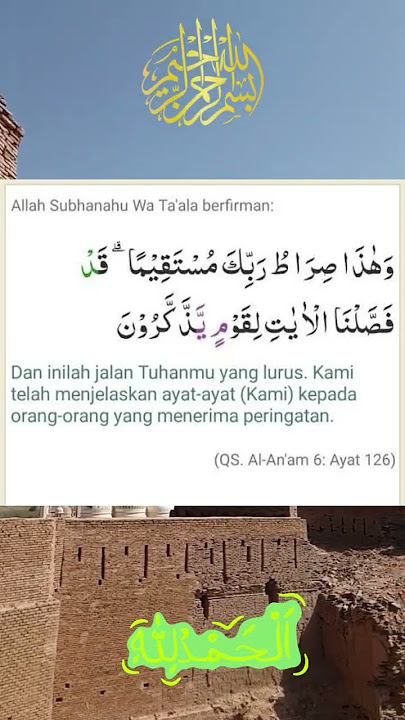 بسم الله الرحمن الرحيم
Allah Subhanahu Wa Ta'ala berfirman:
وَهٰذَا صِرَاطُ رَبِّكَ مُسْتَقِيْمًا ۗ قَدْ
فَصَّلْنَا الْاٰيٰتِ لِقَوْمٍ يَّذَّكَّرُوْنَ
Dan inilah jalan Tuhanmu yang lurus. Kami
telah menjelaskan ayat-ayat (Kami) kepada
orang-orang yang menerima peringatan.
(QS. Al-An'am 6: Ayat 126)
اَلْحَمْدُلِلّٰهِ